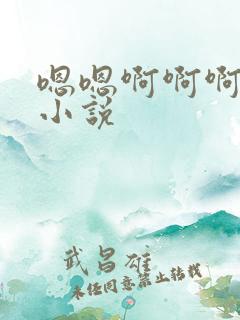 嗯嗯啊啊啊
小說
武昌雄
未经同意禁止转载